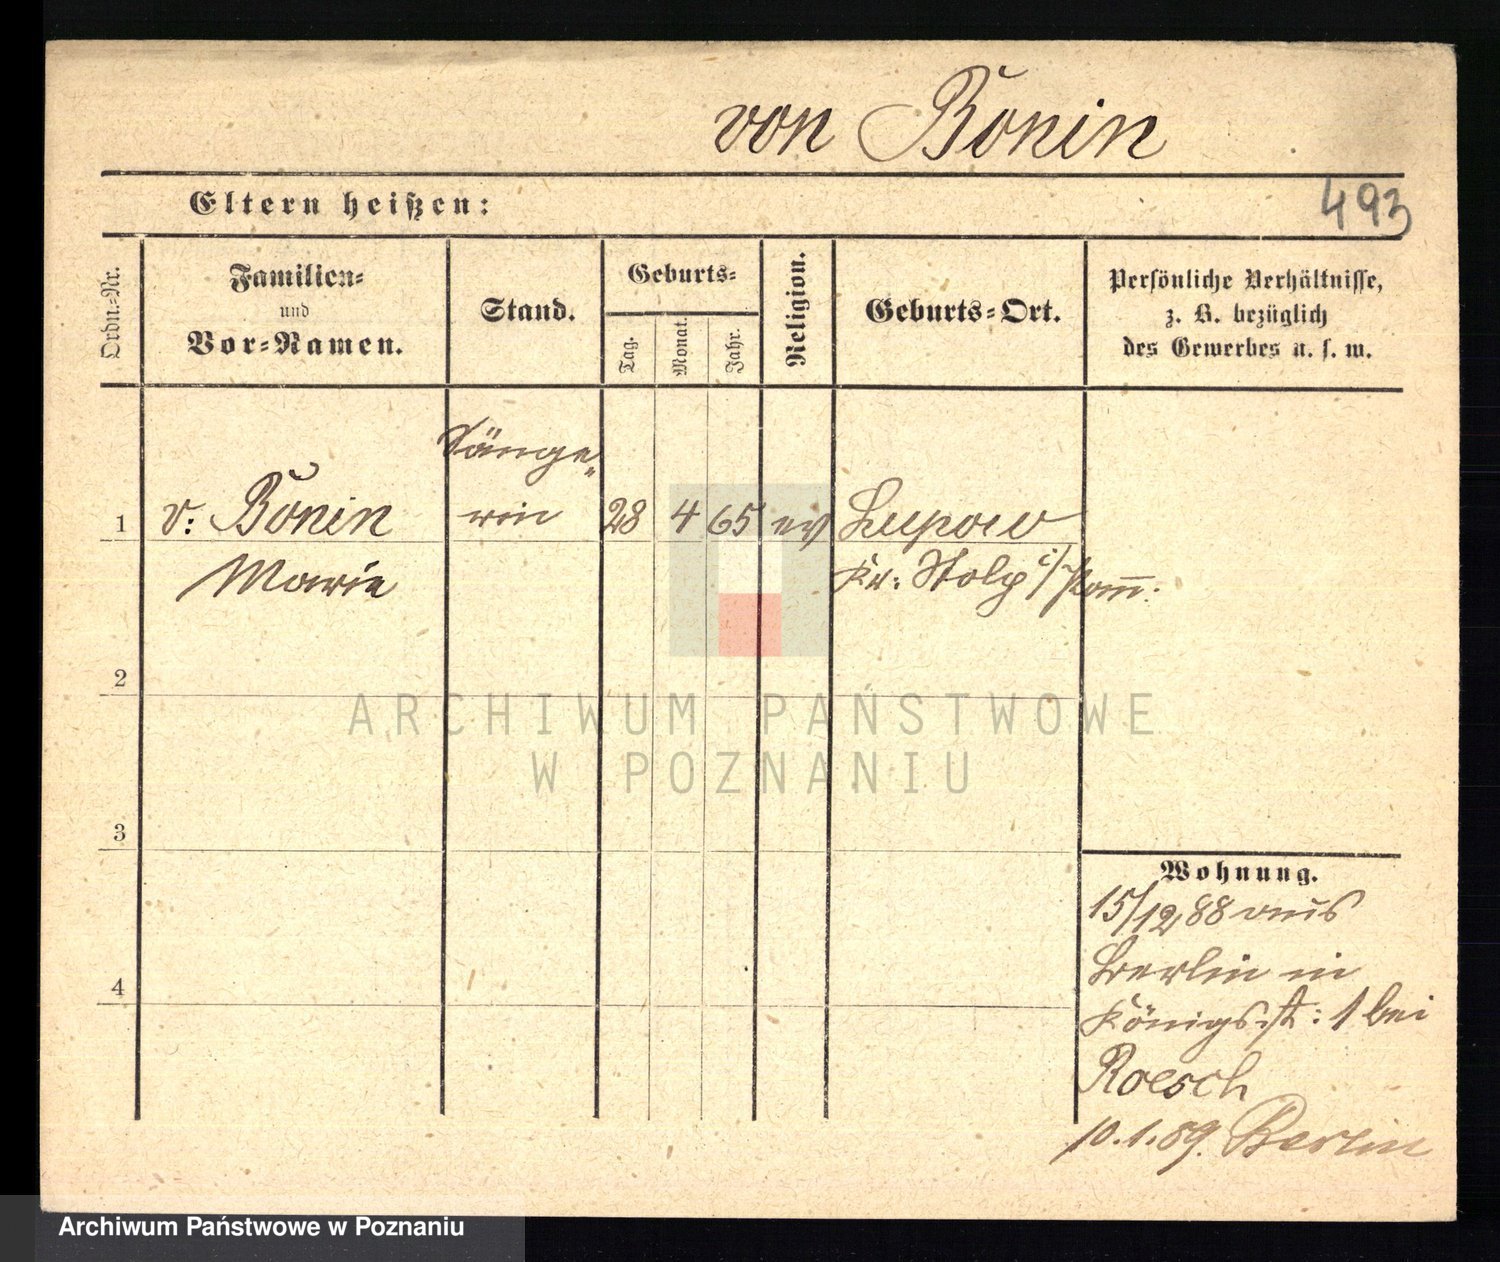 von Bonin
Eltern heißen:
493
Ordn.-Nr.
Familien-
und
Vor-Namen.
Stand.
Geburts-
Tag.
Monat.
Jahr.
Religion.
Geburts-Ort.
Persönliche Verhältnisse,
z. B. bezüglich
des Gewerbes u. s. w.
Sänge-
1 v: Bonin rin 28 4 65 ev Lupow
Marie Kr: Stolp i/Pom:
2
ARCHIWUM PAŃSTWOWE
W POZNANIU
3
Wohnung.
15/12 88 aus
Berlin in
4
Königsst: 1 bei
Roesch
10.1.89. Berlin
Archiwum Państwowe w Poznaniu